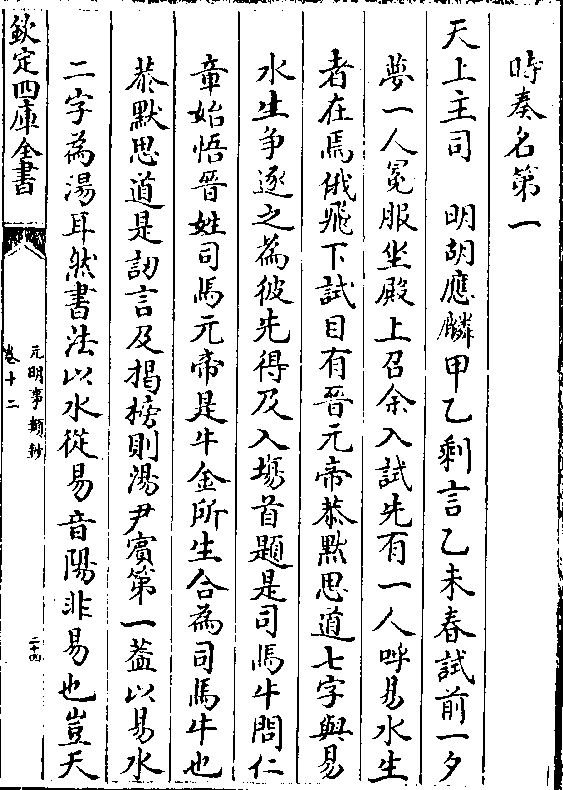 時奏名第一
天上主司　明胡應麟甲乙剩言乙未春試前一夕
夢一人冕服坐殿上召余入試先有一人呼易水生
者在焉俄飛下試目有晉元帝恭黙思道七字與易
水生争逐之為彼先得及入塲首題是司馬牛問仁
章始悟晉姓司馬元帝是牛金所生合為司馬牛也
恭默思道是訒言及揭榜則湯尹賓第一葢以易水
二字為湯耳然書法以水從昜音陽非易也豈天
欽定四庫全書
元明事類鈔
卷十二
二十四